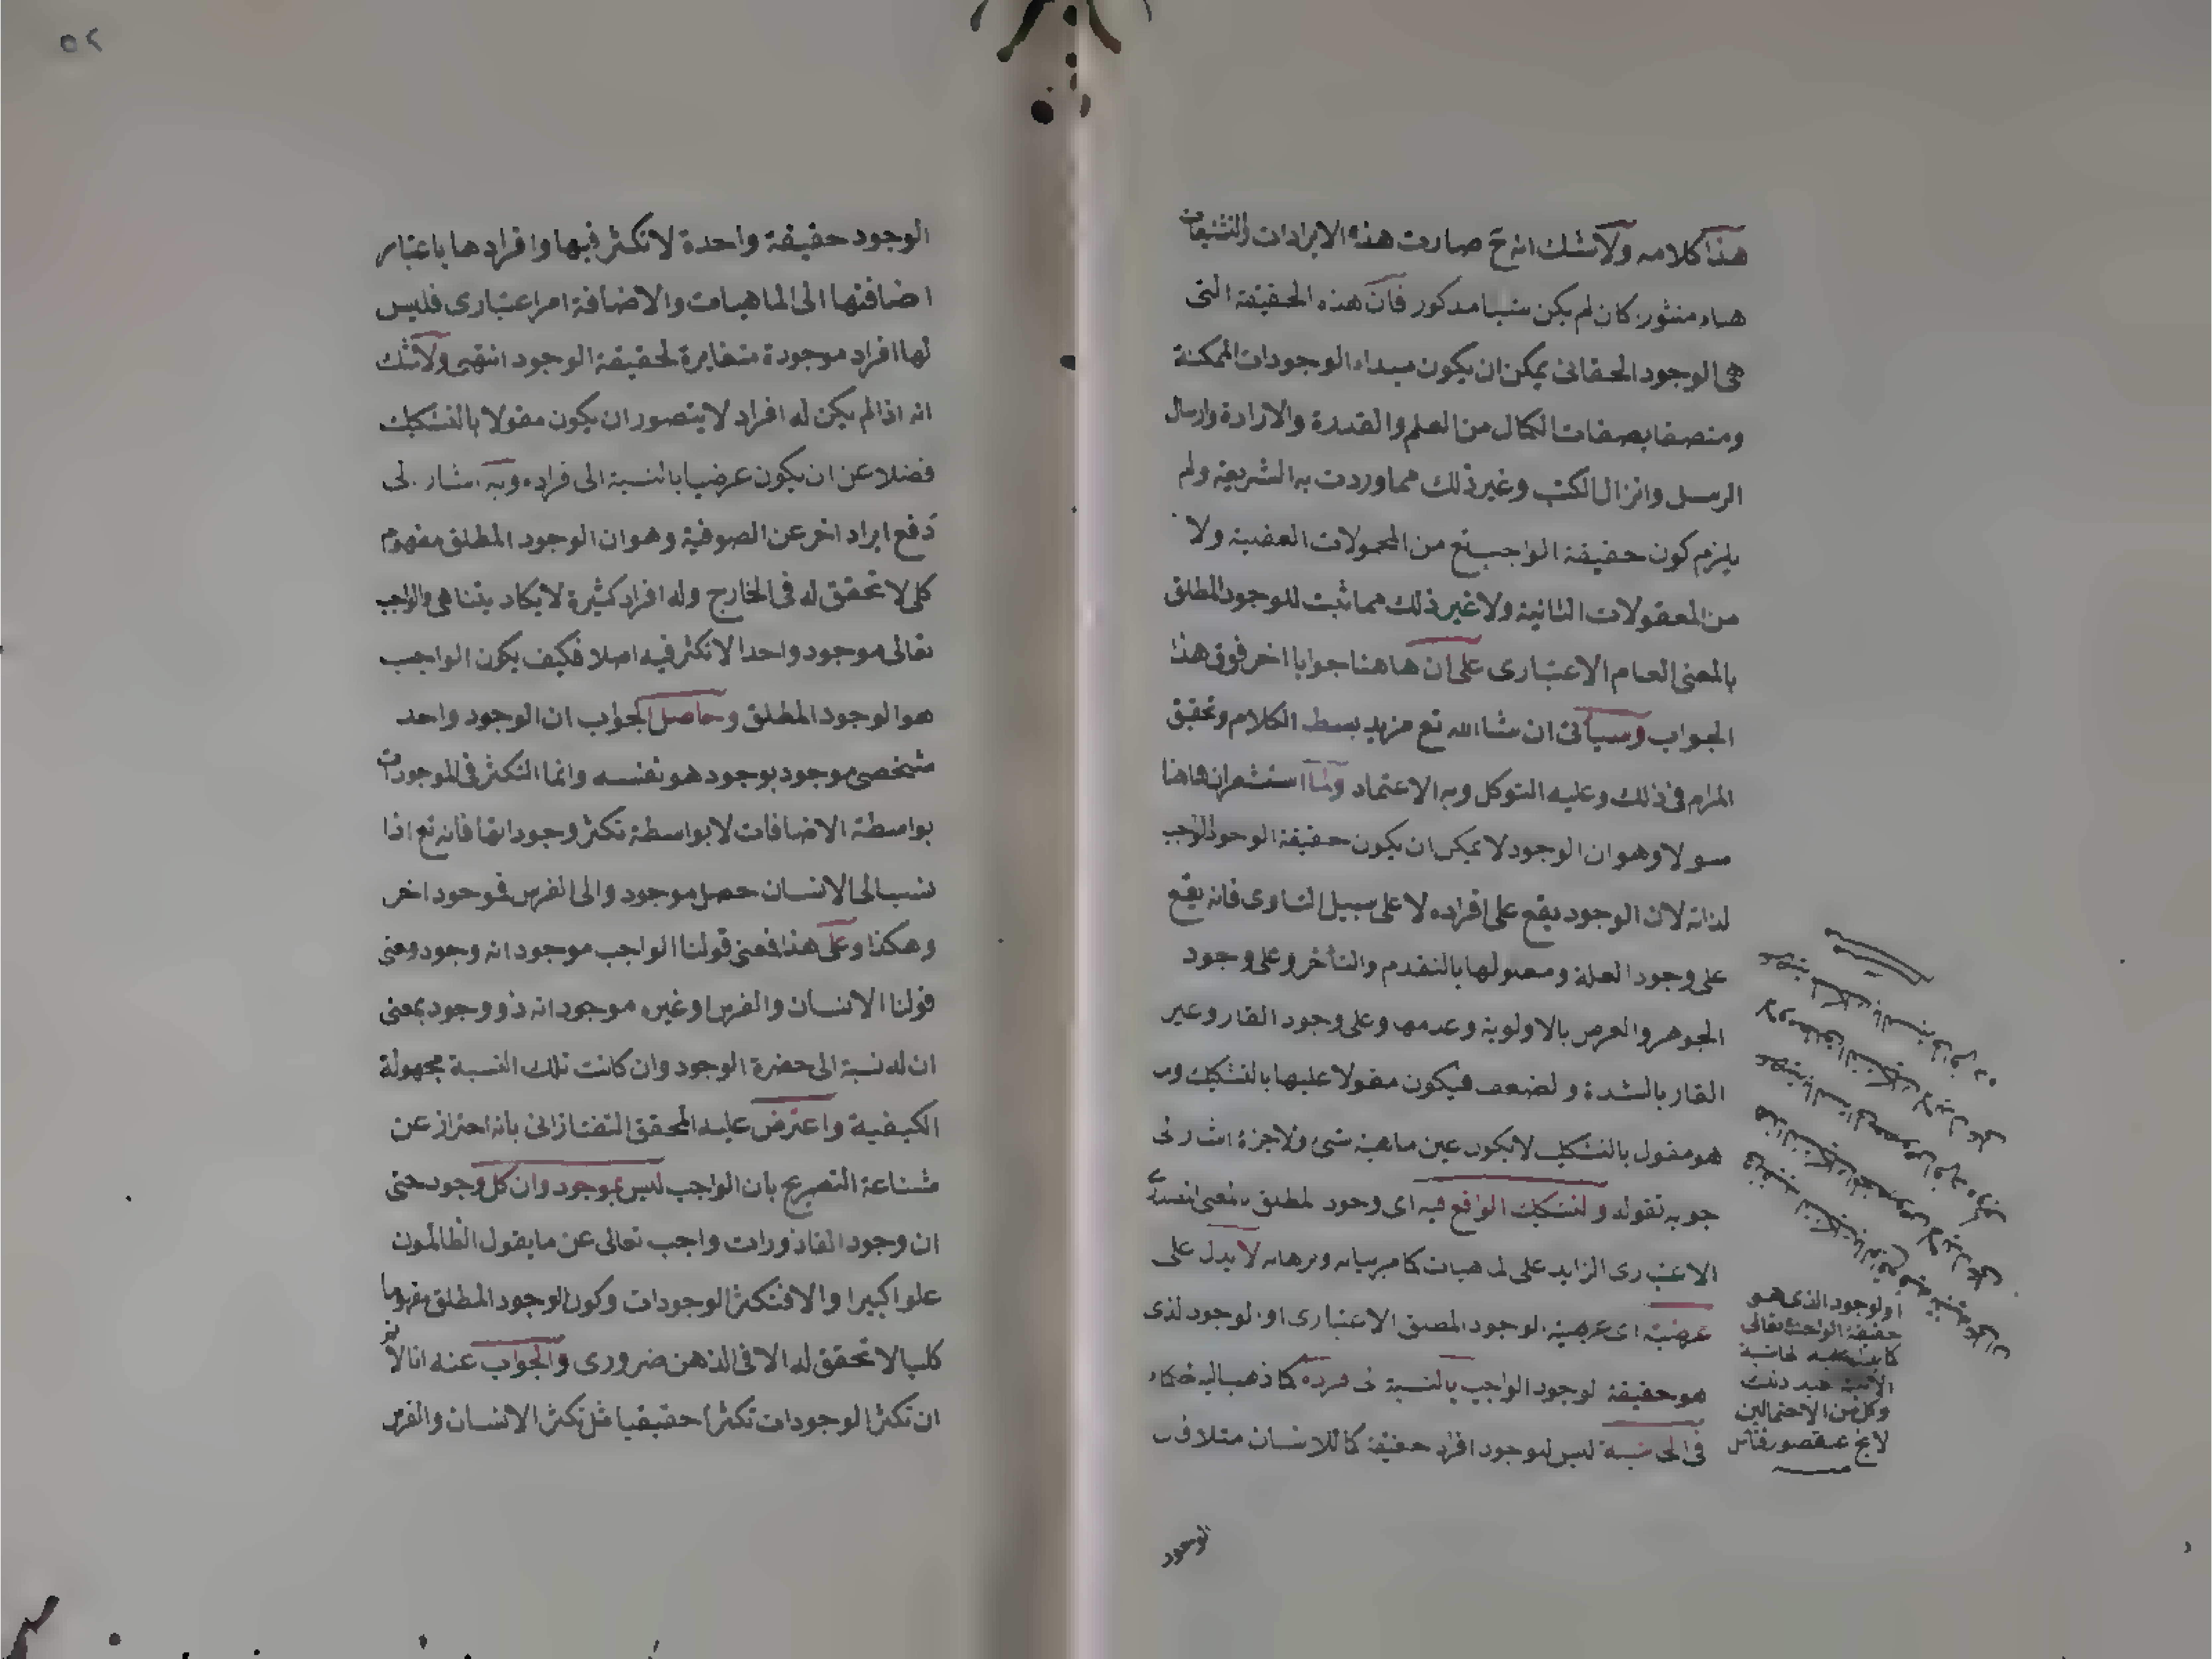 هذا كلامه ولاشك انه ح صارت هذه الايرادات والتشنيعات
هباء منثور كان لم يكن شيا مدكور فان هذه الحقيقة التى
هى الوجود الحقانى يمكن ان يكون مبداء الوجودات الممكنة
ومتصفا بصفات الكمال من العلم والقدرة والارادة وارسال
الرسل وانزال الكتب وغير ذلك مما وردت به الشريعة ولم
يلزم كون حقيقة الواجب تع من المحمولات العقلية ولا
من المعقولات الثانية ولا غير ذلك مما ثبت للوجود المطلق
بالمعنى العام الاعتبارى على ان هاهنا جوابا اخر فوق هذا
الجواب وسياتى ان شا الله تع مزيد بسط الكلام وتحقيق
المرام فى ذلك وعليه التوكل وبه الاعتماد ولما استشعران هاهنا
سولا وهو ان الوجود لا يمكن ان يكون حقيقة الوجود الواجب
لذاته لان الوجود يقع على افراده لا على سبيل التساوى فانه يقع
على وجود العلة ومعلولها بالتقدم والتأخر وعلى وجود
الجوهر والعرض بالاولوية وعدمها وعلى وجود القار وغير
القار بالشدة والضعف فيكون مقولا عليها بالتشكيك وما
هو مقول بالتشكيك لا يكون عين ماهية شى ولا جزءه اشار الى
جوابه بقوله والتشكيك الواقع فيه اى وجود المطلق بالمعنى
الاعتبارى الزايد على الماهيات كما مر بيانه وبرهانه لا يدل على
عرضيته اى عرضية الوجود المطلق الاعتبارى او الوجود الذى
هو حقيقة الوجود الواجب بالنسبة الى افراده كما ذهب اليه الحكماء
فى الحاشية ليس للوجود افراد حقيقة كما للانسان مثلا فان
الوجود
او الوجود الذى هو
حقيقة الواجب تعالى
كما
الاتية
وكل من الاحتمالين
لا يخ عن قصور فتأمل
٥٢
الوجود حقيقة واحدة لا تكثر فيها وافرادها باعتبار
اضافتها الى الماهيات والاضافة امر اعتبارى فليس
لها افراد موجودة متغايرة لحقيقة الوجود انتهى ولاشك
انه اذا لم يكن له افراد لا يتصور ان يكون مقولا بالتشكيك
فضلا عن ان يكون عرضيا بالنسبة الى افراده وبه اشار الى
دفع ايراد اخر عن الصوفية وهو ان الوجود المطلق مفهوم
كلى لا تحقق له فى الخارج وله افراد كثيرة لا يكاد يتناهى والواجب
تعالى موجود واحد الا تكثر فيه اصلا فكيف يكون الواجب
هو الوجود المطلق وحاصل الجواب ان الوجود واحد
شخصى موجود بوجود هو نفسه وانما التكثر فى الموجودات
بواسطة الاضافات لا بواسطة تكثر وجوداتها فانه تع اذا
نسب الى الانسان حصل موجود والى الفرس فموجود اخر
وهكذا وعلى هذا فمعنى قولنا الواجب موجود انه وجود ومعنى
قولنا الانسان والفرس او غيره موجود انه ذو وجود بمعنى
ان له نسبة الى حضرة الوجود وان كانت تلك النسبة مجهولة
الكيفية واعترض عليه المحقق التفتازانى بانه احتراز عن
شناعة التصريح بان الواجب ليس بموجود وان كل وجود حتى
ان وجود القاذورات واجب تعالى عن ما يقول الظالمون
علوا كبيرا والا فتكثر الوجودات وكون الوجود المطلق مفهوما
كليا لا تحقق له الا فى الذهن ضرورى والجواب عنه انا لا نم
ان تكثر الوجودات تكثرا حقيقيا مثل تكثر الانسان والفرس